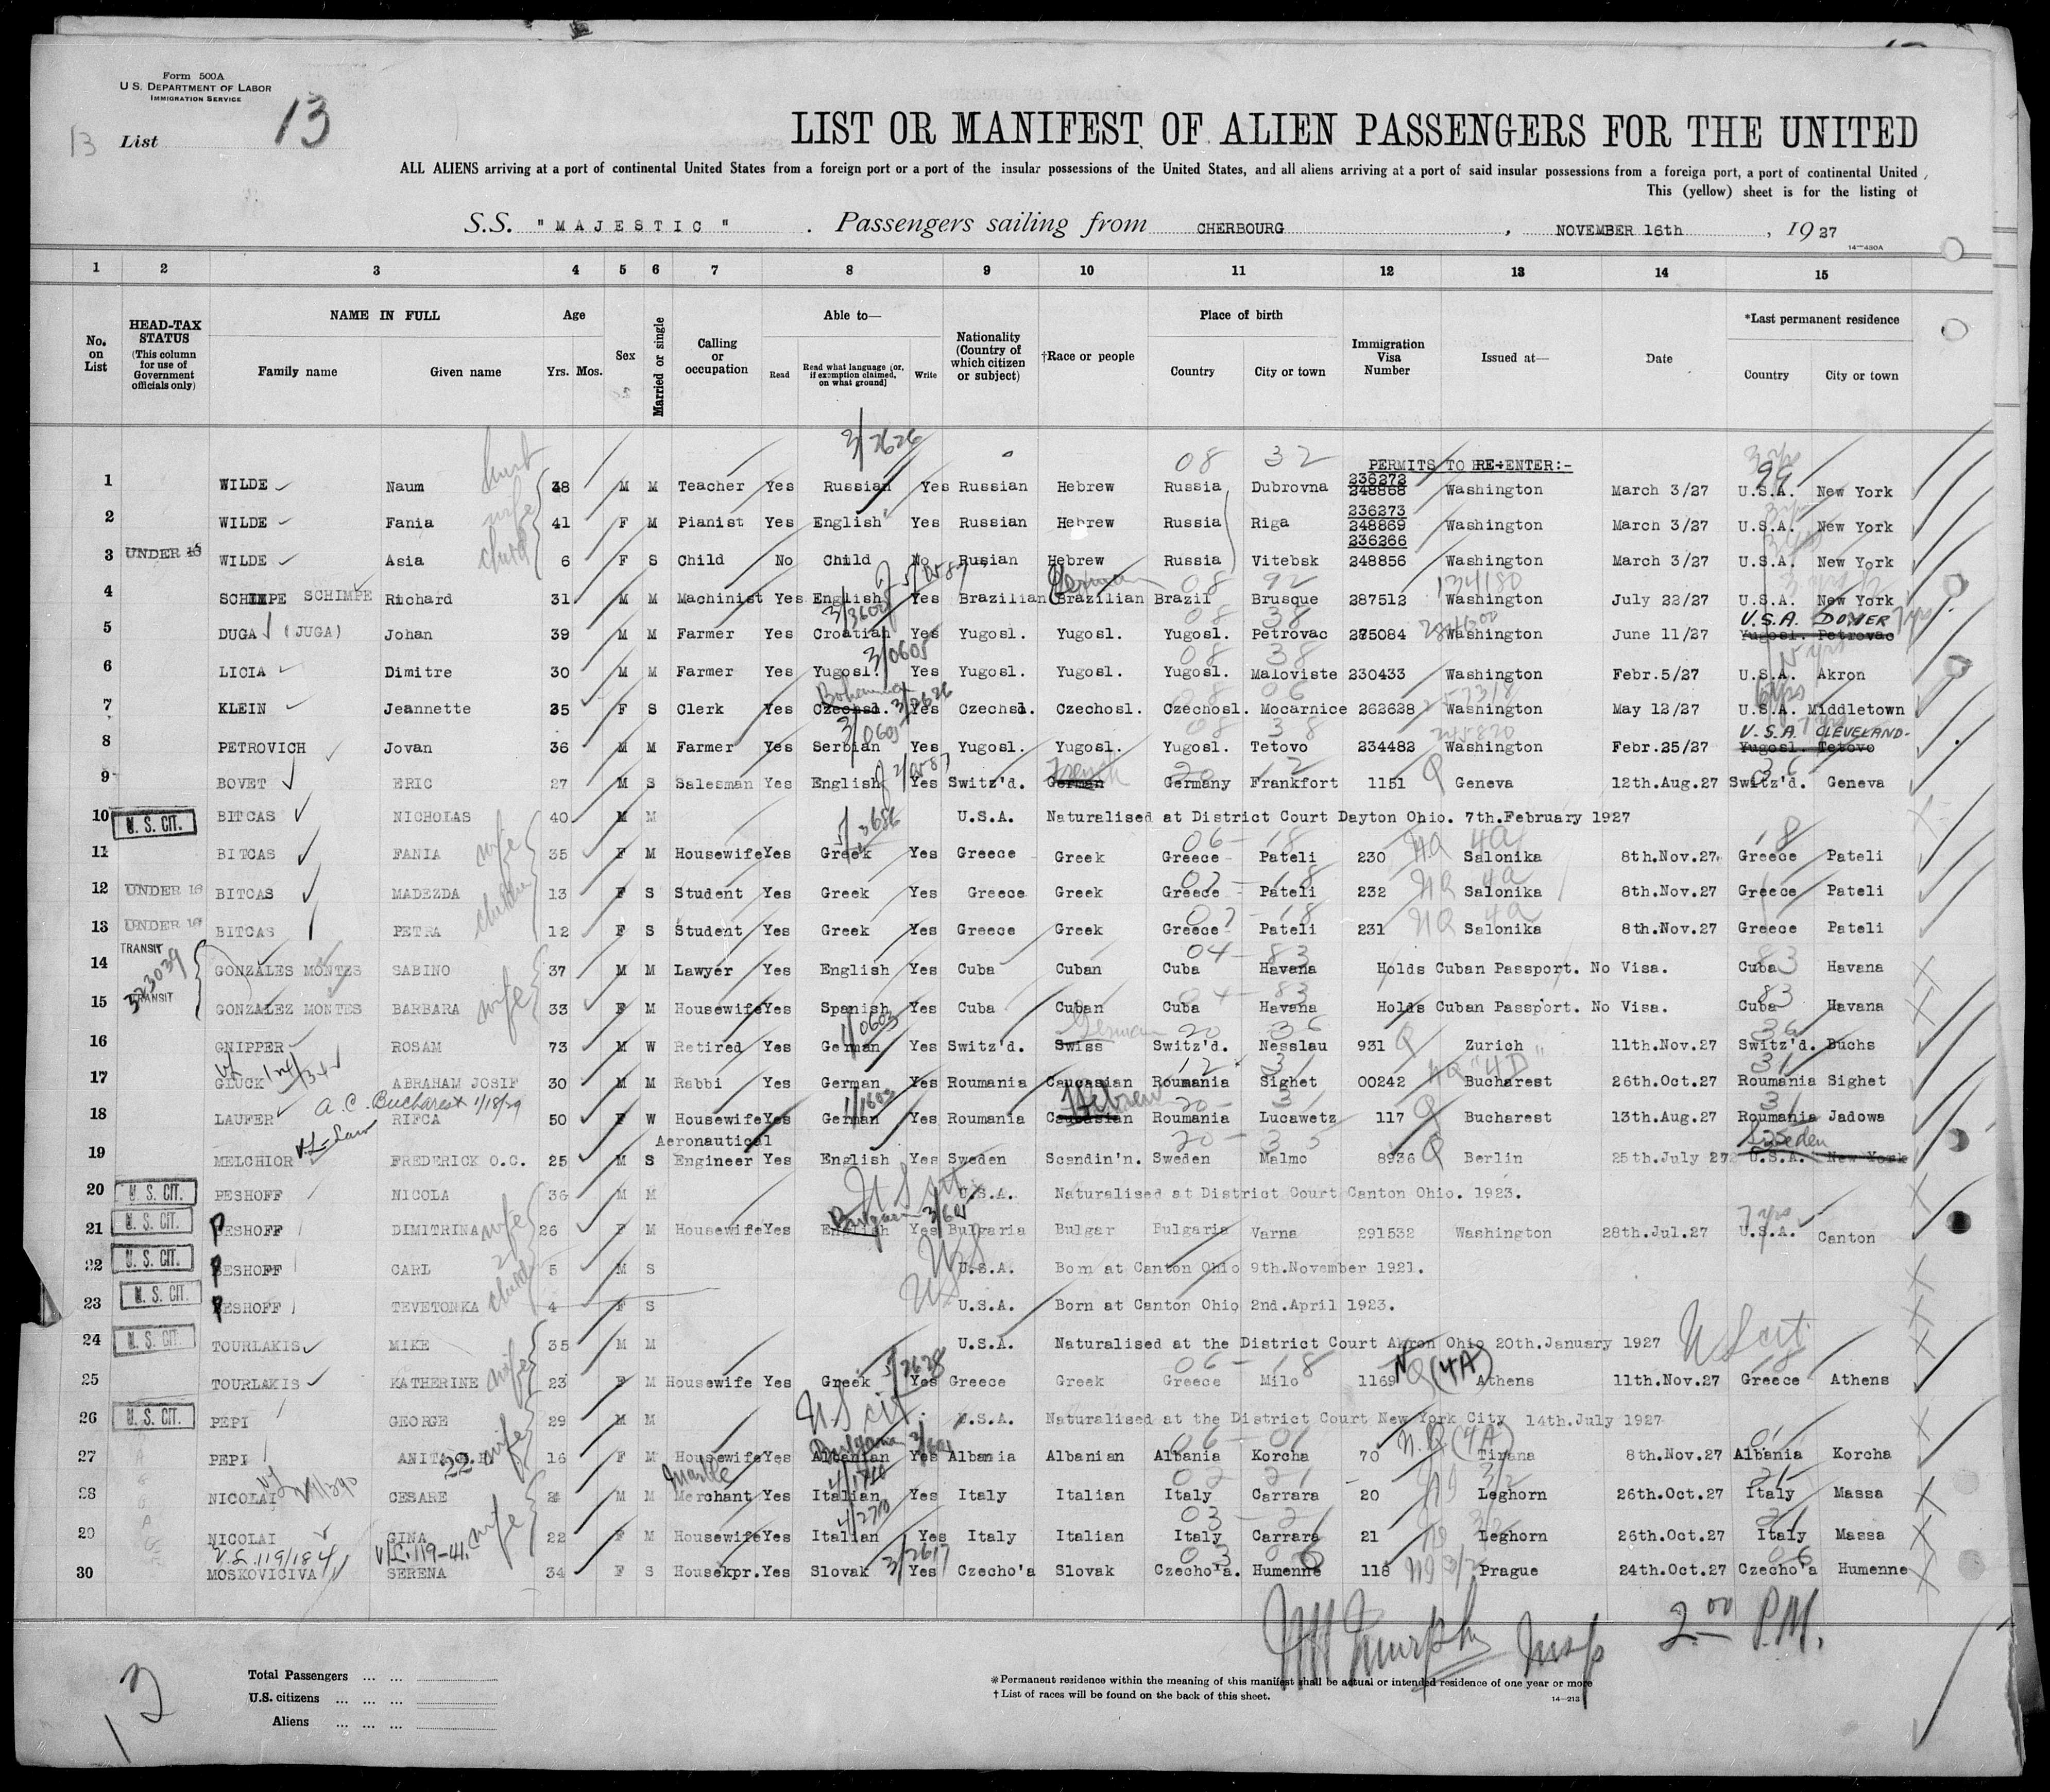 Form 500A
U.S. DEPARTMENT OF LABOR
IMMIGRATION SERVICE
13 List 13
LIST OR MANIFEST OF ALIEN PASSENGERS FOR THE UNITED
ALL ALIENS arriving at a port of continental United States from a foreign port or a port of the insular possessions of the United States, and all aliens arriving at a port of said insular possessions from a foreign port, a port of continental United
This (yellow) sheet is for the listing of
S.S. "MAJESTIC". Passengers sailing from CHERBOURG, NOVEMBER 16th, 1927
14—430A
1 2 3 4 5 6 7 8 9 10 11 12 13 14 15
No. on List
HEAD-TAX STATUS (This column for use of Government officials only)
NAME IN FULL Family name Given name
Age Yrs. Mos.
Sex
Married or single
Calling or occupation
Able to— Read Read what language (or, if exemption claimed, on what ground) Write
Nationality (Country of which citizen or subject)
†Race or people
Place of birth Country City or town
Immigration Visa Number
Issued at—
Date
*Last permanent residence Country City or town
3/2626
08 32 PERMITS TO RE-ENTER:- 3 yrs
1 WILDE Naum husb 38 M M Teacher Yes Russian Yes Russian Hebrew Russia Dubrovna 236272 248868 Washington March 3/27 99 U.S.A. New York
2 WILDE Fania wife 41 F M Pianist Yes English Yes Russian Hebrew Russia Riga 236273 248869 Washington March 3/27 U.S.A. New York
3 UNDER 16 WILDE Asia child 6 F S Child No Child No Rusian Hebrew Russia Vitebsk 236266 248856 Washington March 3/27 U.S.A. New York
4 SCHIMPE SCHIMPE Richard 31 M M Machinist Yes English Yes Brazilian Brazilian German Brazil 08 92 Brusque 287512 134180 Washington July 22/27 U.S.A. New York
5 DUGA (JUGA) Johan 39 M M Farmer Yes Croatian Yes Yugosl. Yugosl. Yugosl. 08 38 Petrovac 275084 Washington June 11/27 Yugosl. Petrovac U.S.A. DOVER 7 yrs
6 LICIA Dimitre 30 M M Farmer Yes Yugosl. 3/0605 Yes Yugosl. Yugosl. Yugosl. 08 38 Maloviste 230433 Washington Febr.5/27 U.S.A. Akron
7 KLEIN Jeannette 35 F S Clerk Yes Czechsl. Bohemian Yes Czechsl. Czechosl. Czechosl. 08 06 Mocarnice 262628 Washington May 12/27 6 yrs U.S.A. Middletown
8 PETROVICH Jovan 36 M M Farmer Yes Serbian Yes Yugosl. Yugosl. Yugosl. 08 38 Tetovo 234482 Washington Febr.25/27 Yugosl. Tetovo U.S.A. 7 yrs CLEVELAND-
9 BOVET ERIC 27 M S Salesman Yes English Yes Switz'd. German French Germany 20 12 Frankfort 1151 Q Geneva 12th.Aug.27 36 Switz'd. Geneva
10 U. S. CIT. BITCAS NICHOLAS 40 M M U.S.A. Naturalised at District Court Dayton Ohio. 7th.February 1927
11 BITCAS FANIA wife 35 F M Housewife Yes Greek Yes Greece Greek Greece 06 - 18 Pateli 230 NQ 4a Salonika 8th.Nov.27 18 Greece Pateli
12 UNDER 16 BITCAS MADEZDA children 13 F S Student Yes Greek Yes Greece Greek Greece 07 - 18 Pateli 232 NQ 4a Salonika 8th.Nov.27 Greece Pateli
13 UNDER 16 BITCAS PETRA 12 F S Student Yes Greek Yes Greece Greek Greece 07 - 18 Pateli 231 NQ 4a Salonika 8th.Nov.27 Greece Pateli
14 TRANSIT 323039 GONZALES MONTES SABINO 37 M M Lawyer Yes English Yes Cuba Cuban Cuba 04 - 83 Havana Holds Cuban Passport. No Visa. Cuba 83 Havana
15 TRANSIT GONZALEZ MONTES BARBARA wife 33 F M Housewife Yes Spanish Yes Cuba Cuban Cuba 04 - 83 Havana Holds Cuban Passport. No Visa. 83 Cuba Havana
16 GNIPPER ROSAM 73 M W Retired Yes German 1/0603 Yes Switz'd. Swiss German Switz'd. 20 36 Nesslau 931 Q Zurich 11th.Nov.27 36 Switz'd. Buchs
17 GLUCK ABRAHAM JOSIF 30 M M Rabbi Yes German Yes Roumania Caucasian Roumania 12 - 31 Sighet 00242 NQ "4D" Bucharest 26th.Oct.27 31 Roumania Sighet
18 LAUFER A.C. Bucharest 1/18/29 RIFCA 50 F W Housewife Yes German 1/1603 Yes Roumania Caucasian Hebrew Roumania 20 - 31 Lucawetz 117 Q Bucharest 13th.Aug.27 31 Roumania Jadowa
19 MELCHIOR FREDERICK O.C. 25 M S Aeronautical Engineer Yes English Yes Sweden Scandin'n. Sweden 20 - 35 Malmo 8936 Q Berlin 25th.July 27 U.S.A. New York Sweden
20 U. S. CIT. PESHOFF NICOLA 36 M M U S cit U.S.A. Naturalised at District Court Canton Ohio. 1923.
21 U. S. CIT. PESHOFF DIMITRINA wife 26 F M Housewife Yes English Bulgarian Yes Bulgaria Bulgar Bulgaria Varna 291532 Washington 28th.Jul.27 7 yrs U.S.A. Canton
22 U. S. CIT. PESHOFF CARL 2 children 5 M S U.S.A. Born at Canton Ohio 9th.November 1921.
23 U. S. CIT. PESHOFF TEVETONKA 4 F S U.S.A. Born at Canton Ohio 2nd.April 1923.
24 U. S. CIT. TOURLAKIS MIKE 35 M M U.S.A. Naturalised at the District Court Akron Ohio 20th.January 1927 U S cit
25 TOURLAKIS KATHERINE wife 23 F M Housewife Yes Greek 5/2628 Yes Greece Greek Greece 06 - 18 Milo 1169 NQ (4A) Athens 11th.Nov.27 18 Greece Athens
26 U. S. CIT. PEPI GEORGE 29 M M U S cit. U.S.A. Naturalised at the District Court New York City 14th.July 1927
27 PEPI ANITA wife 16 F M Housewife Yes Albanian Yes Albania Albanian Albania 06 - 01 Korcha 70 N.Q (4A) Tirana 8th.Nov.27 01 Albania Korcha
28 NICOLAI CESARE M M Marble Merchant Yes Italian Yes Italy Italian Italy 02 - 21 Carrara 20 Leghorn 26th.Oct.27 21 Italy Massa
29 NICOLAI GINA wife 22 F M Housewife Yes Italian 4/2710 Yes Italy Italian Italy 03 - 21 Carrara 21 Leghorn 26th.Oct.27 21 Italy Massa
30 V.L. 119/184 MOSKOVICIVA V/L. 119-41. SERENA 34 F S Housekpr. Yes Slovak 3/2617 Yes Czecho'a Slovak Czecho'a. 03 06 Humenne 118 Prague 24th.Oct.27 06 Czecho'a Humenne
Murphy Insp 2.00 P.M.
13
Total Passengers ... ...
U.S. citizens ... ... ...
Aliens ... ... ...
*Permanent residence within the meaning of this manifest shall be actual or intended residence of one year or more
†List of races will be found on the back of this sheet. 14—213